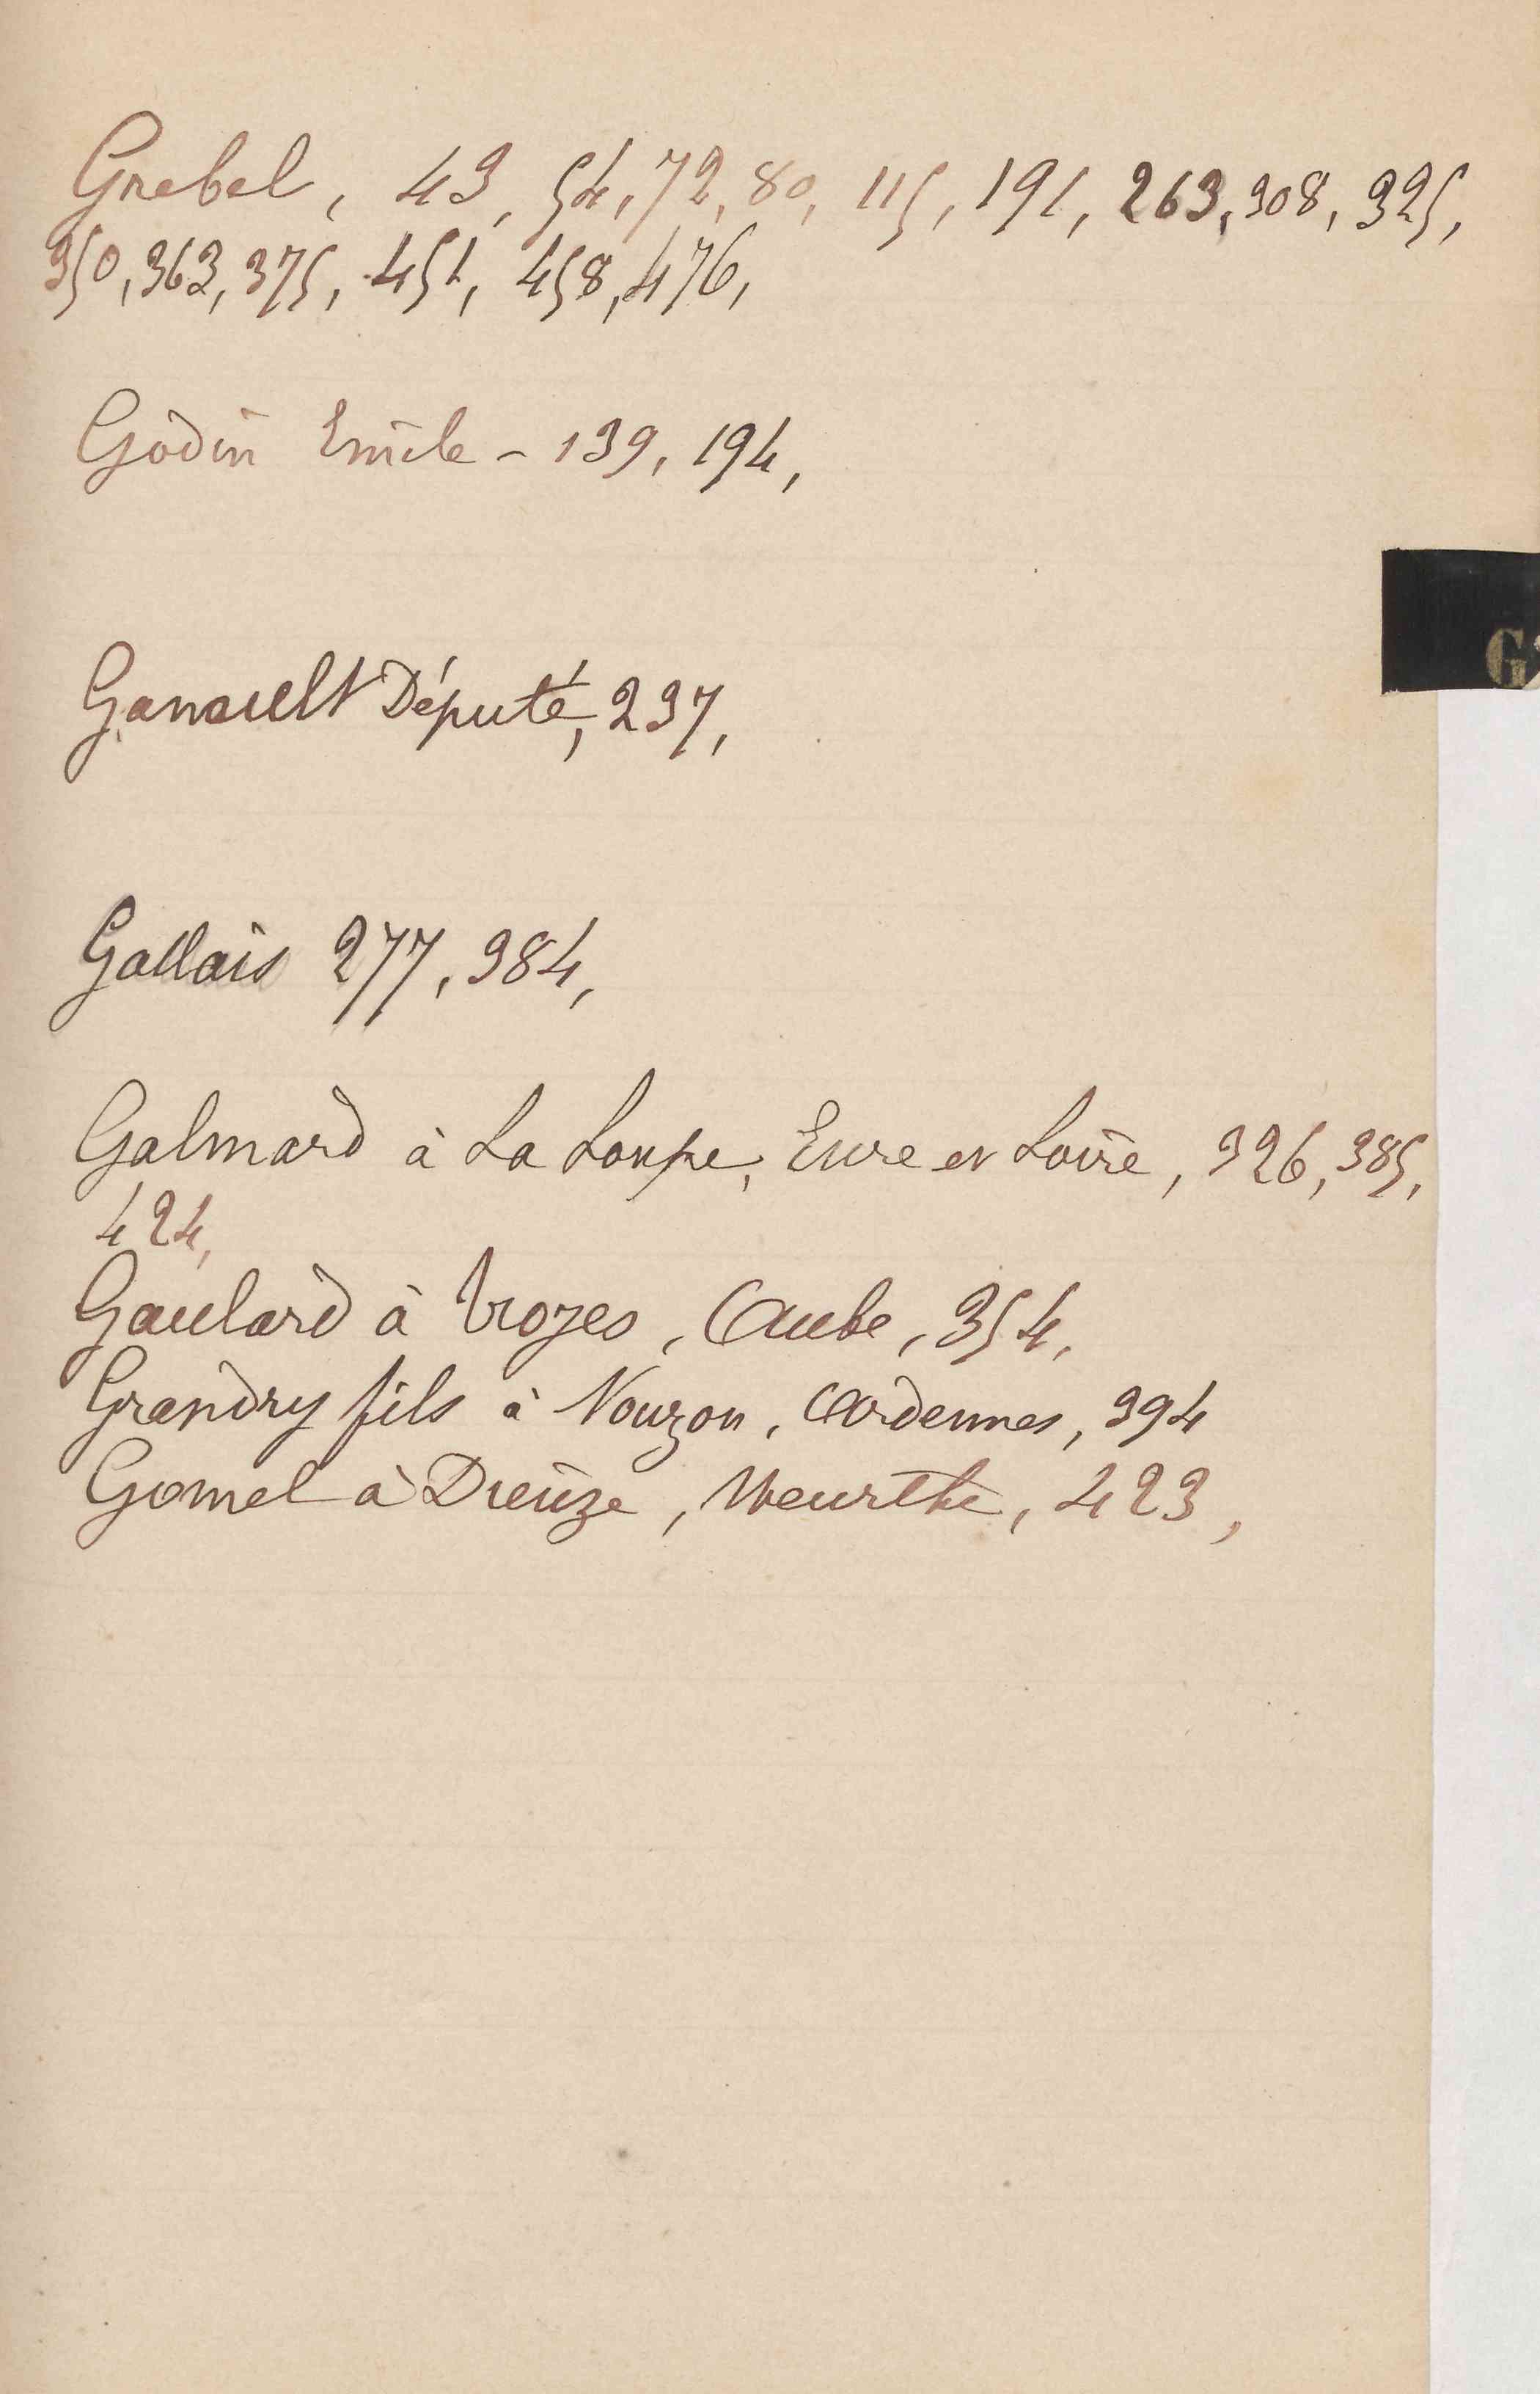 Grebel, 43, 54, 72, 80, 115, 191, 263, 308, 325,
350, 363, 375, 451, 458, 476,
Godin Emile - 139, 194,
Ganault Député, 237,
Gallais 277, 384,
Galmard à La Loupe, Eure et Loire, 326, 385,
424,
Gaulard à Troyes, Aube, 354,
Grandry fils à Nouzon, Ardennes, 394
Gomel à Dieuze, Meurthe, 423,
G